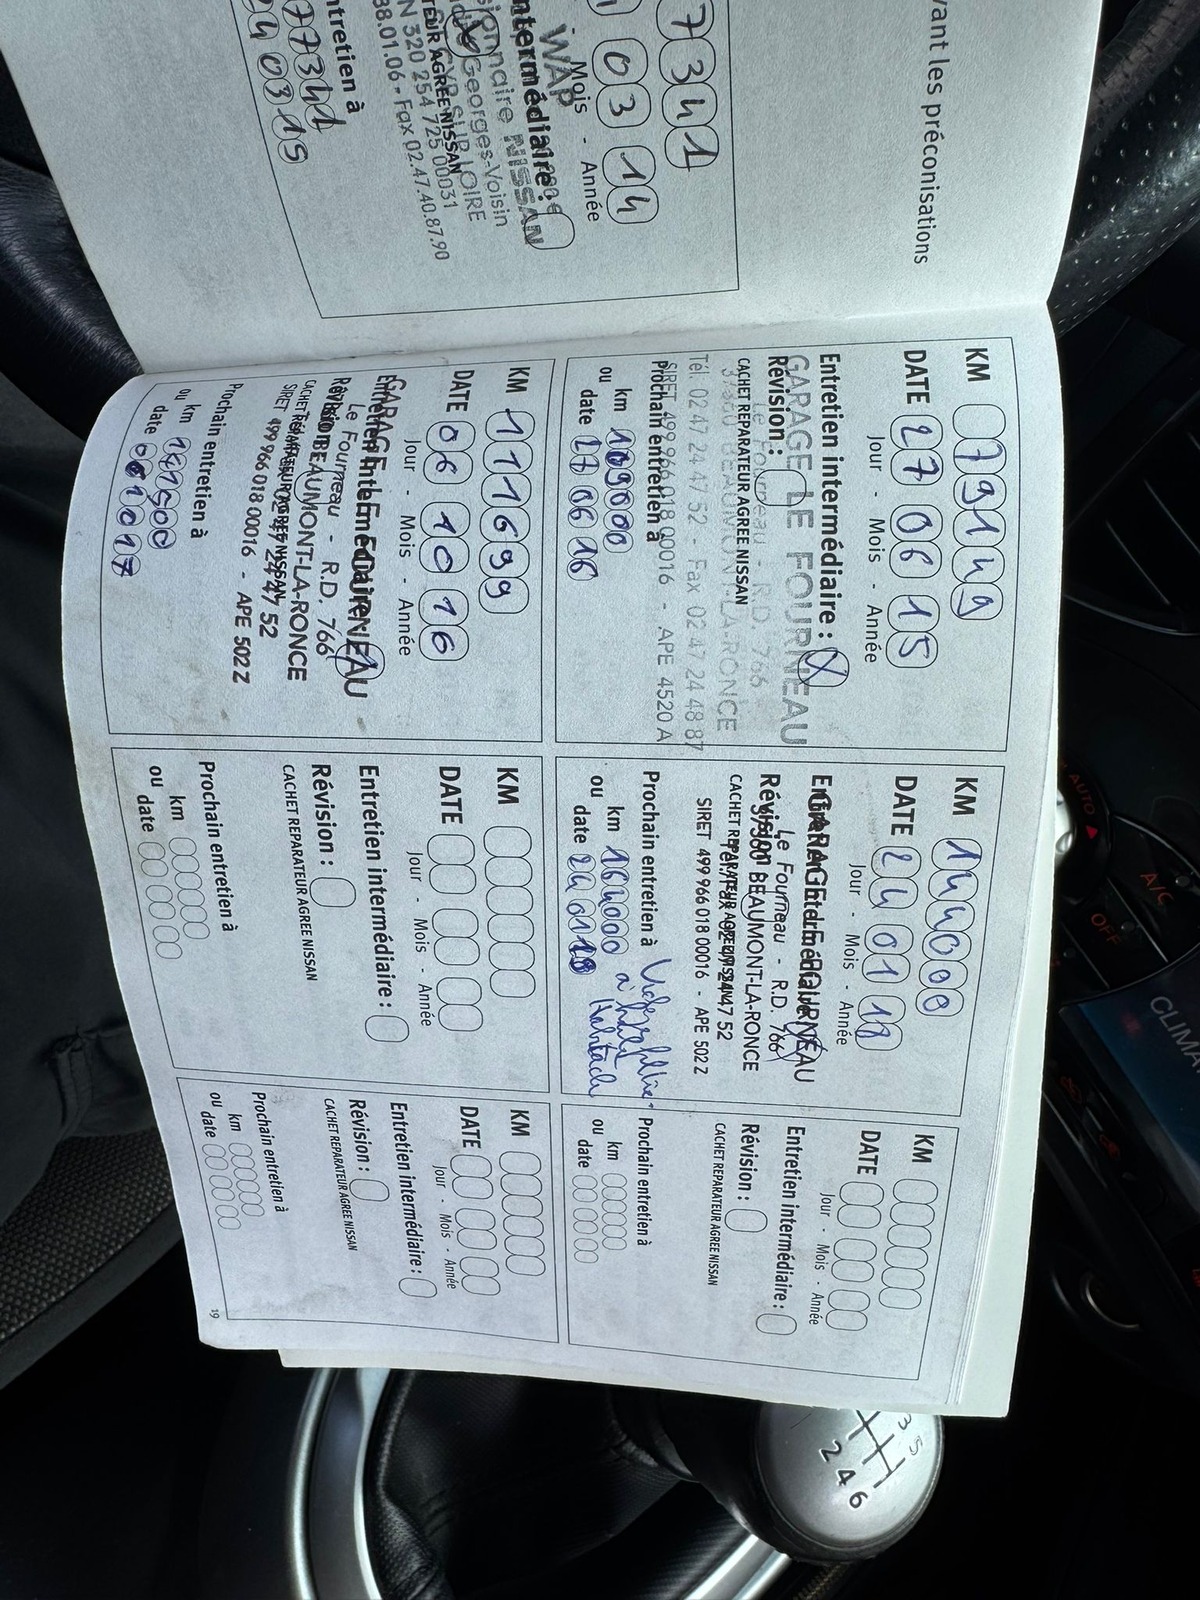 vant les préconisations
7341
03 14
Mois - Année
WAP
ntermédiaire :
sionnaire NISSAN
Georges-Voisin
CYR SUR LOIRE
TEUR AGREE NISSAN
N 320 254 725 00031
38.01.06 - Fax 02.47.40.87.90
ntretien à
77341
24 03 15
KM 79149
DATE 27 06 15
Jour - Mois - Année
Entretien intermédiaire : X
GARAGE LE FOURNEAU
Révision :
Le Fourneau - R.D. 766
CACHET REPARATEUR AGREE NISSAN
37360 BEAUMONT-LA-RONCE
Tél. 02 47 24 47 52 - Fax 02 47 24 48 87
SIRET 499 966 018 00016 - APE 4520 A
Prochain entretien à
km 109000
ou date 27 06 16
KM 111699
DATE 06 10 16
Jour - Mois - Année
Entretien intermédiaire :
GARAGE LE FOURNEAU
Le Fourneau - R.D. 766
Révision :
BEAUMONT-LA-RONCE
CACHET REPARATEUR AGREE NISSAN
47 52
SIRET 499 966 018 00016 - APE 502 Z
Prochain entretien à
km
ou date 06 10 17
KM 144000
DATE 24 01 18
Jour - Mois - Année
Entretien intermédiaire :
GARAGE LE FOURNEAU
Le Fourneau - R.D. 766
Révision :
37360 BEAUMONT-LA-RONCE
CACHET REPARATEUR AGREE NISSAN
Tél./Fax 02 47 24 47 52
SIRET 499 966 018 00016 - APE 502 Z
Prochain entretien à
km 164000 à
ou date 24 01
KM
DATE
Jour - Mois - Année
Entretien intermédiaire :
Révision :
CACHET REPARATEUR AGREE NISSAN
Prochain entretien à
km
ou date
KM
DATE
Jour - Mois - Année
Entretien intermédiaire :
Révision :
CACHET REPARATEUR AGREE NISSAN
Prochain entretien à
km
ou date
KM
DATE
Jour - Mois - Année
Entretien intermédiaire :
Révision :
CACHET REPARATEUR AGREE NISSAN
Prochain entretien à
km
ou date
19
AUTO
A/C
OFF
CLIMA
3 5
2 4 6